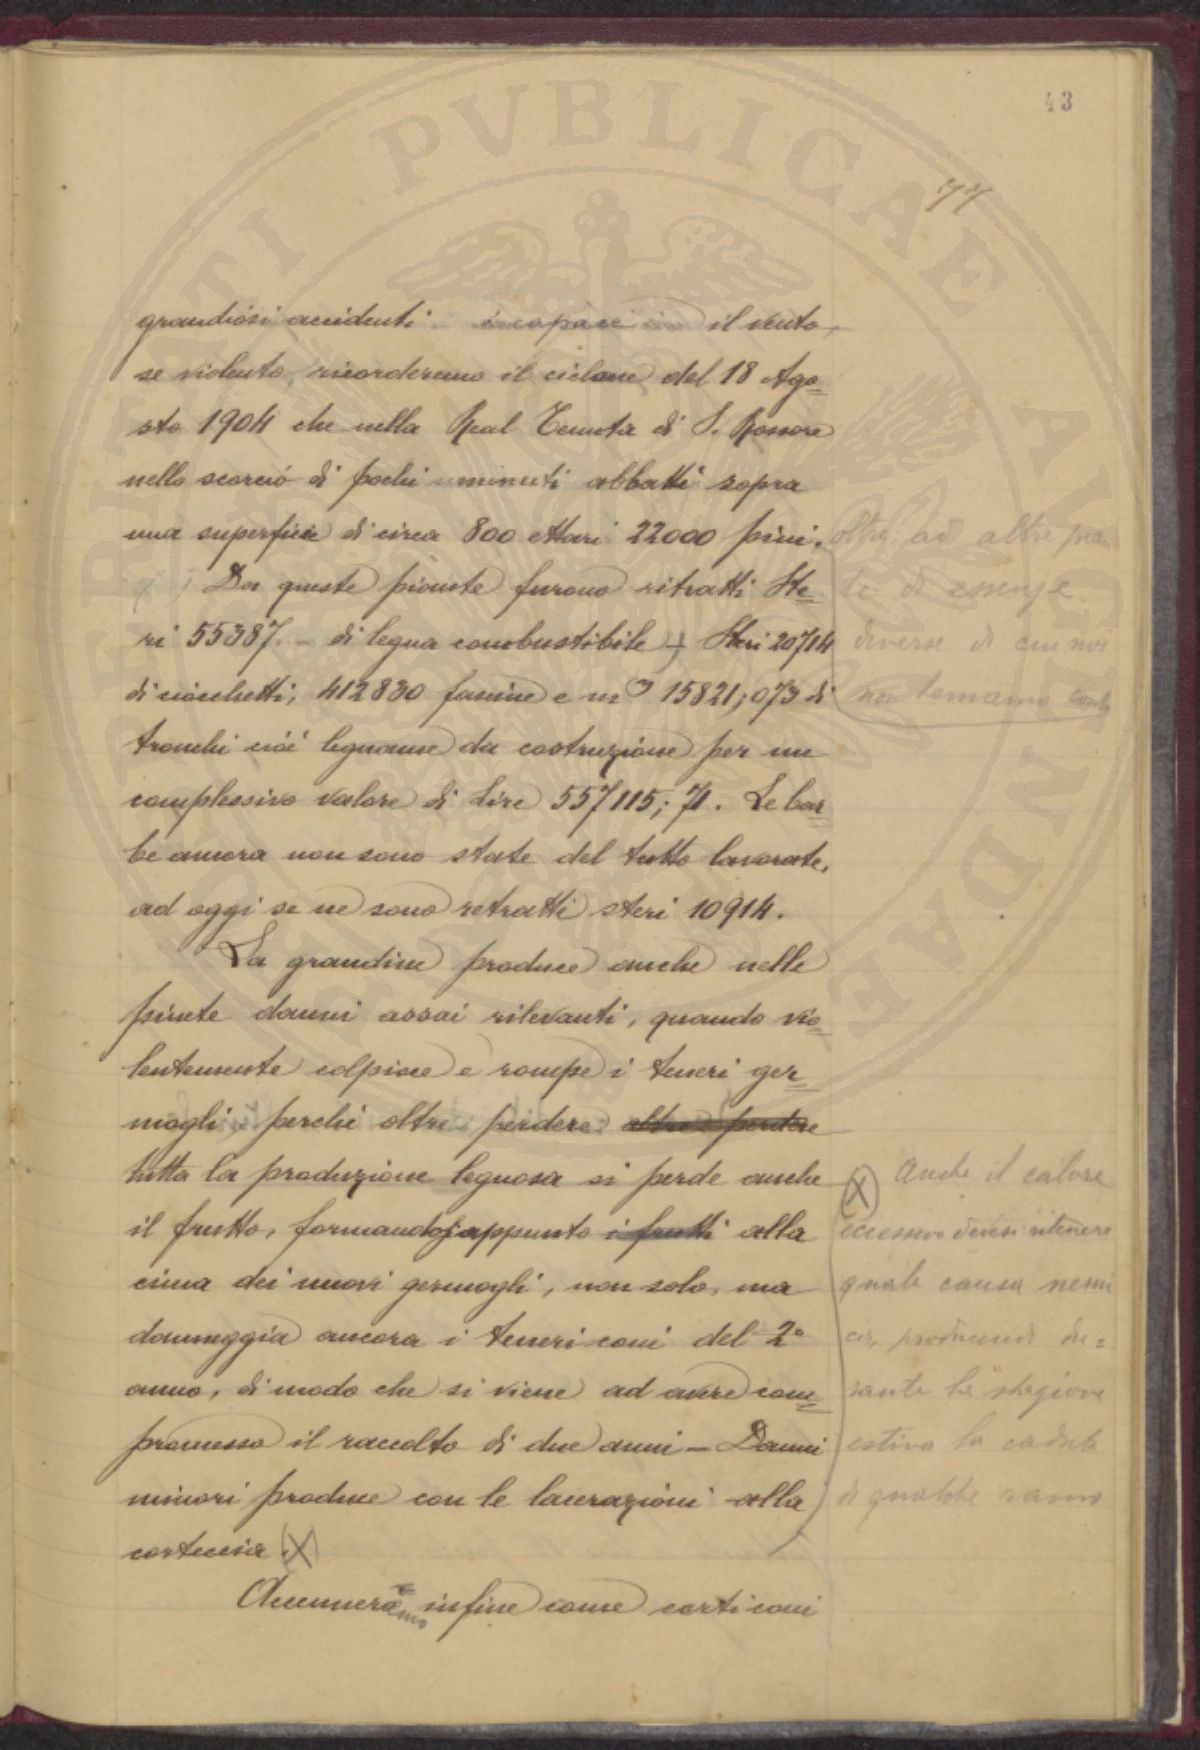 43
77
grandiosi accidenti incapace il vento,
se violento, ricorderemo il ciclone del 18 Ago=
sto 1904 che nella Real Tenuta di S. Rossore
nello scorcio di pochi minuti abbattè sopra
una superficie di circa 800 ettari 22000 pini.
oltre ad altre pian
te di essenze
diverse di cui noi
non temiamo conto
Da queste pianate furono ritratti Ste=
ri 55387.- di legna combustibile, Steri 20714
di ciocchetti, 412830 fascine e m3 15821,073 di
tronchi cioè legname da costruzione per un
complessivo valore di Lire 557115,71. Le bar=
be ancora non sono state del tutto lavorate,
ad oggi se ne sono retratti steri 10914.
La grandine produce anche nelle
pinete danni assai rilevanti, quando vio=
lentemente colpisce e rompe i teneri ger=
mogli perchè oltre perdere oltre a perdere
tutta la produzione legnosa si perde anche
il frutto, formandosi appunto i frutti alla
cima dei nuovi germogli, non solo, ma
danneggia ancora i teneri coni del 2°
anno, di modo che si viene ad avere com=
promesso il raccolto di due anni - Danni
minori produce con le lacerazioni alla
corteccia. (X)
(X) Anche il calore
eccessivo devesi ritenere
quale causa nemi
ca, producendo du=
rante la stagione
estiva la caduta
di qualche ramo
Accenneremo infine come certi coni
PUBLICAE